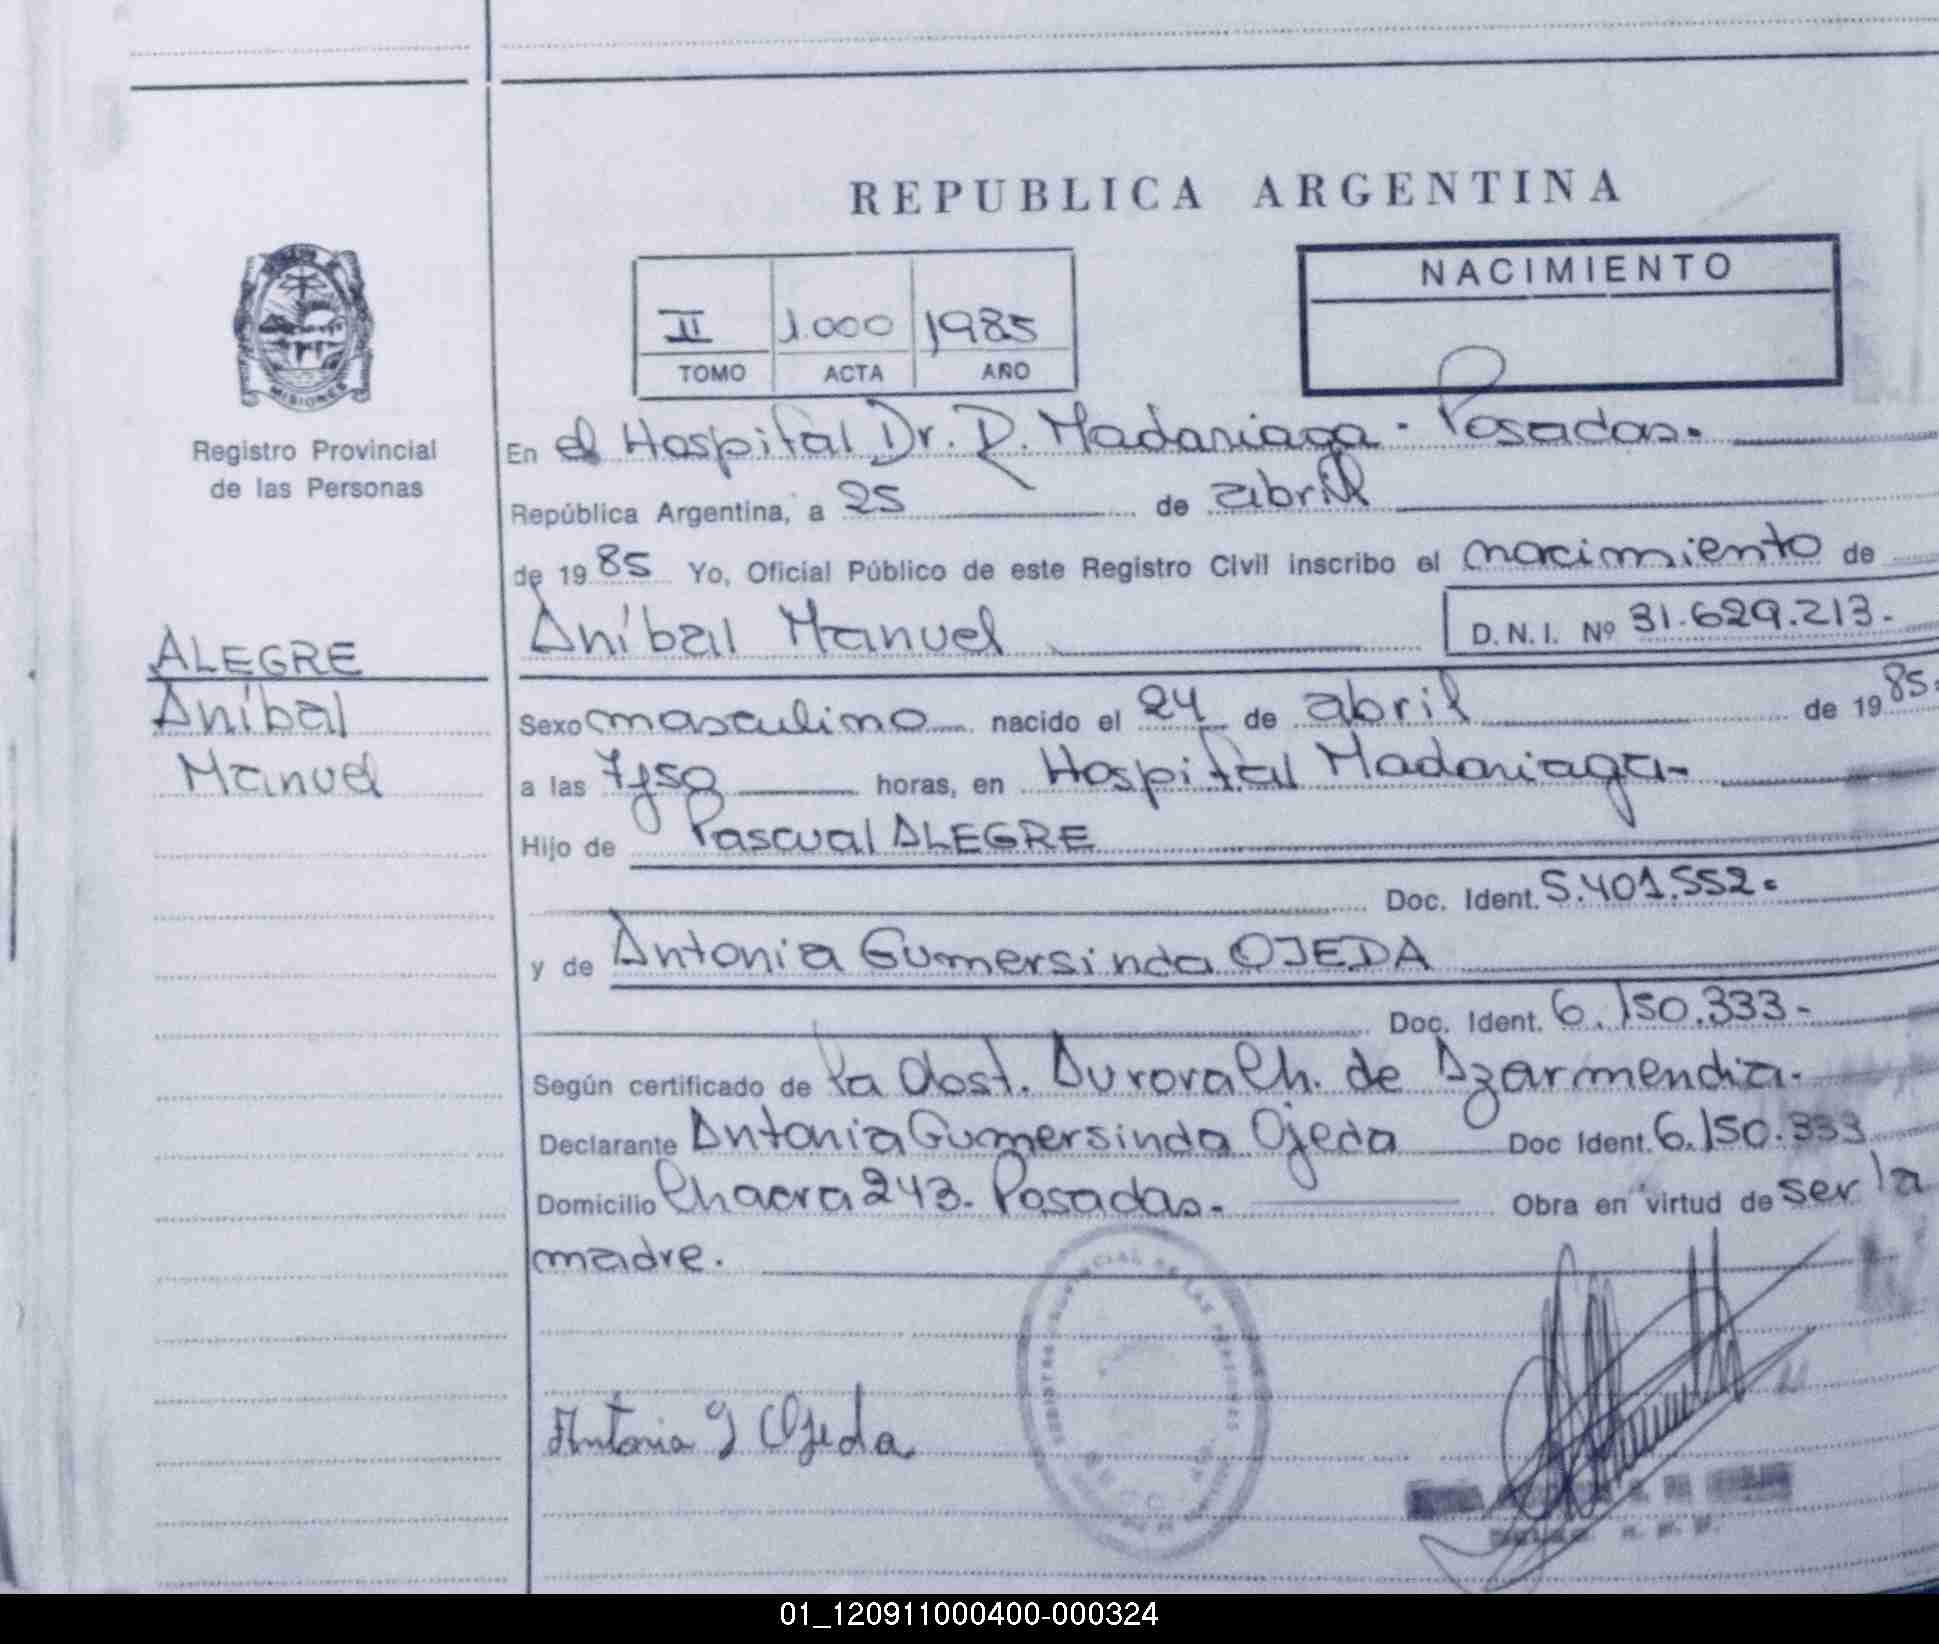 REPUBLICA ARGENTINA
NACIMIENTO
II 1.000 1985
TOMO ACTA AÑO
MISIONES
Registro Provincial
de las Personas
En el Hospital Dr. R. Madariaga - Posadas.
República Argentina, a 25 de abril
de 1985 Yo, Oficial Público de este Registro Civil inscribo el nacimiento de
Aníbal Manuel D.N.I. Nº 31.629.213.-
ALEGRE
Aníbal
Manuel
Sexo masculino nacido el 24 de abril de 1985.
a las 7y50 horas, en Hospital Madariaga-
Hijo de Pascual ALEGRE
Doc. Ident. 5.401.552.
y de Antonia Gumersinda OJEDA
Doc. Ident. 6.150.333-
Según certificado de la Obst. Aurora Ch. de Azarmendia.
Declarante Antonia Gumersinda Ojeda Doc Ident. 6.150.333
Domicilio Chacra 243. Posadas. Obra en virtud de ser la
madre.
REGISTRO PROVINCIAL DE LAS PERSONAS
Antonia G Ojeda
01_120911000400-000324